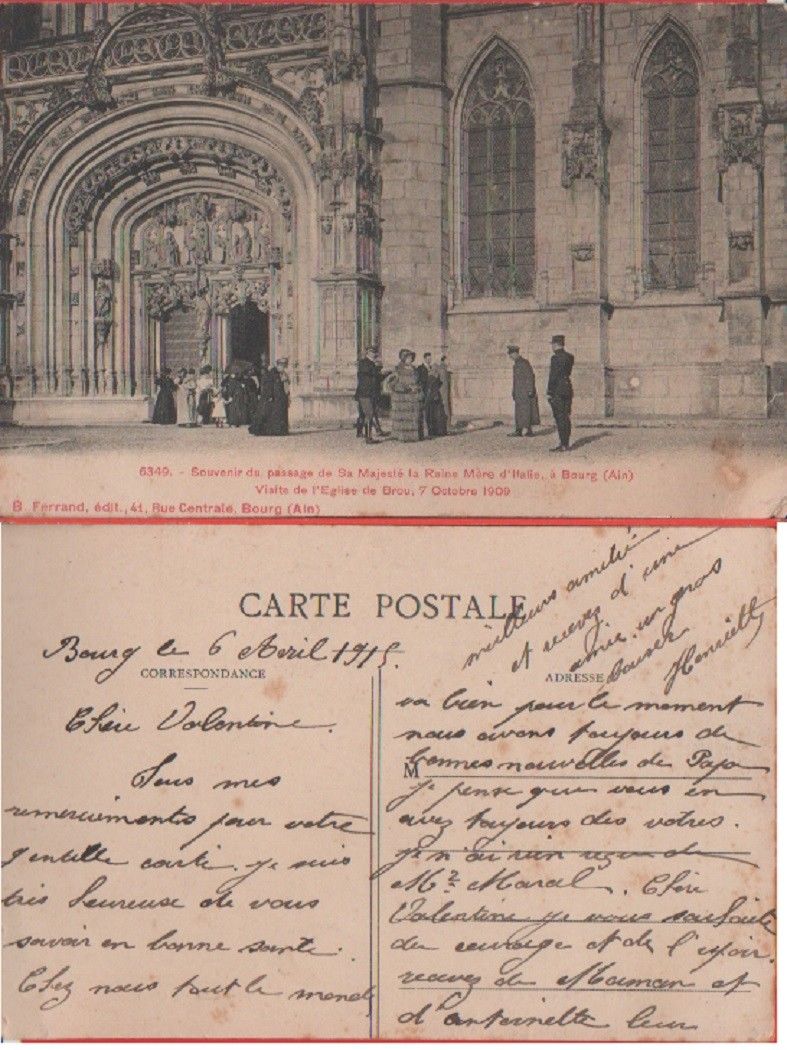 6349. - Souvenir du passage de Sa Majesté la Reine Mère d'Italie, à Bourg (Ain)
Visite de l'Eglise de Brou, 7 Octobre 1909
B. Ferrand, édit., 41, Rue Centrale, Bourg (Ain)
CARTE POSTALE
Bourg le 6 Avril 1915.
CORRESPONDANCE
Chère Valentine.
Tous mes
remerciements pour votre
gentille carte. je suis
très heureuse de vous
savoir en bonne santé.
Chez nous tout le monde
ADRESSE
va bien pour le moment
nous avons toujours de
M
bonnes nouvelles de Papa
je pense que vous en
avez toujours des votres.
je n'ai rien reçu de
Mr Marcel. Chère
Valentine je vous souhaite
du courage et de l'espoir.
recevez de Maman et
d'antoinette leur
meilleurs amitié
et recevez d'une
amie un gros
baiser
Henriette